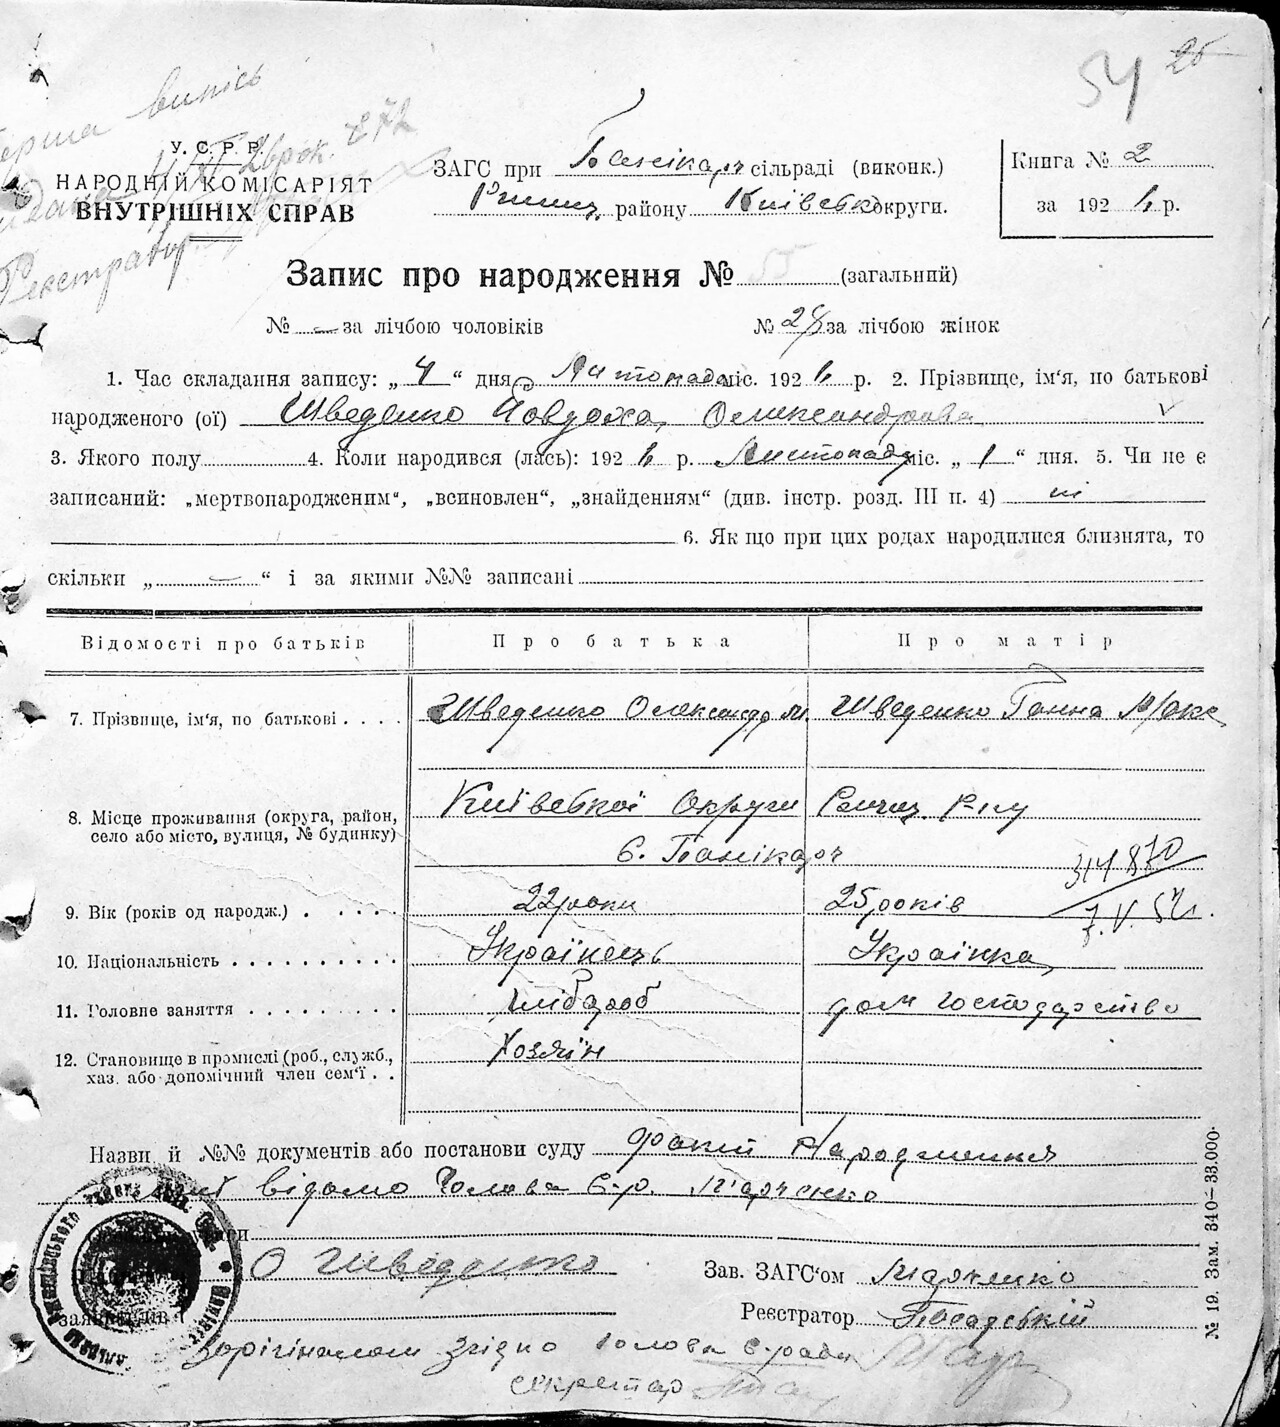 54 26
Перша випись
У. С. Р. Р.
НАРОДНІЙ КОМІСАРІЯТ
ВНУТРІШНІХ СПРАВ
Реєстратор
ЗАГС при Банікар сільраді (виконк.)
району Київськ округи.
Книга № 2
за 1926 р.
Запис про народження № 55 (загальний)
№ — за лічбою чоловіків № 28 за лічбою жінок
1. Час складання запису: „ 4 “ дня Листопада міс. 1926 р. 2. Прізвище, ім'я, по батькові
народженого (ої) Шведенко Йовдоха, Олександрова
3. Якого полу 4. Коли народився (лась): 1926 р. Листопада міс. „ 1 “ дня. 5. Чи не є
записаний: „мертвонародженим“, „всиновлен“, „знайденням“ (див. інстр. розд. III п. 4) ні
6. Як що при цих родах народилися близнята, то
скільки „ — “ і за якими №№ записані
Відомості про батьків Про батька Про матір
7. Прізвище, ім'я, по батькові . . . . Шведенко Олександр М. Шведенко Ганна Макс
8. Місце проживання (округа, район, село або місто, вулиця, № будинку) Київської Округи
с. Банікар
314870
7.V.54.
9. Вік (років од народж.) . . . . . 22 роки 25 років
10. Національність . . . . . . . . . . Українець Українка
11. Головне заняття . . . . . . . . . хлібороб дом господарство
12. Становище в промислі (роб., служб., Хозяїн
хаз. або допомічний член сем'ї . .
Назви й №№ документів або постанови суду факт Народження
відомо Голова С-р. Марченко
О Шведенко
Зав. ЗАГС'ом Марченко
заявників
Реєстратор Посадський
З орігіналом згідно Голова с-ради
секретар
№ 19. Зам. 340—33.000.